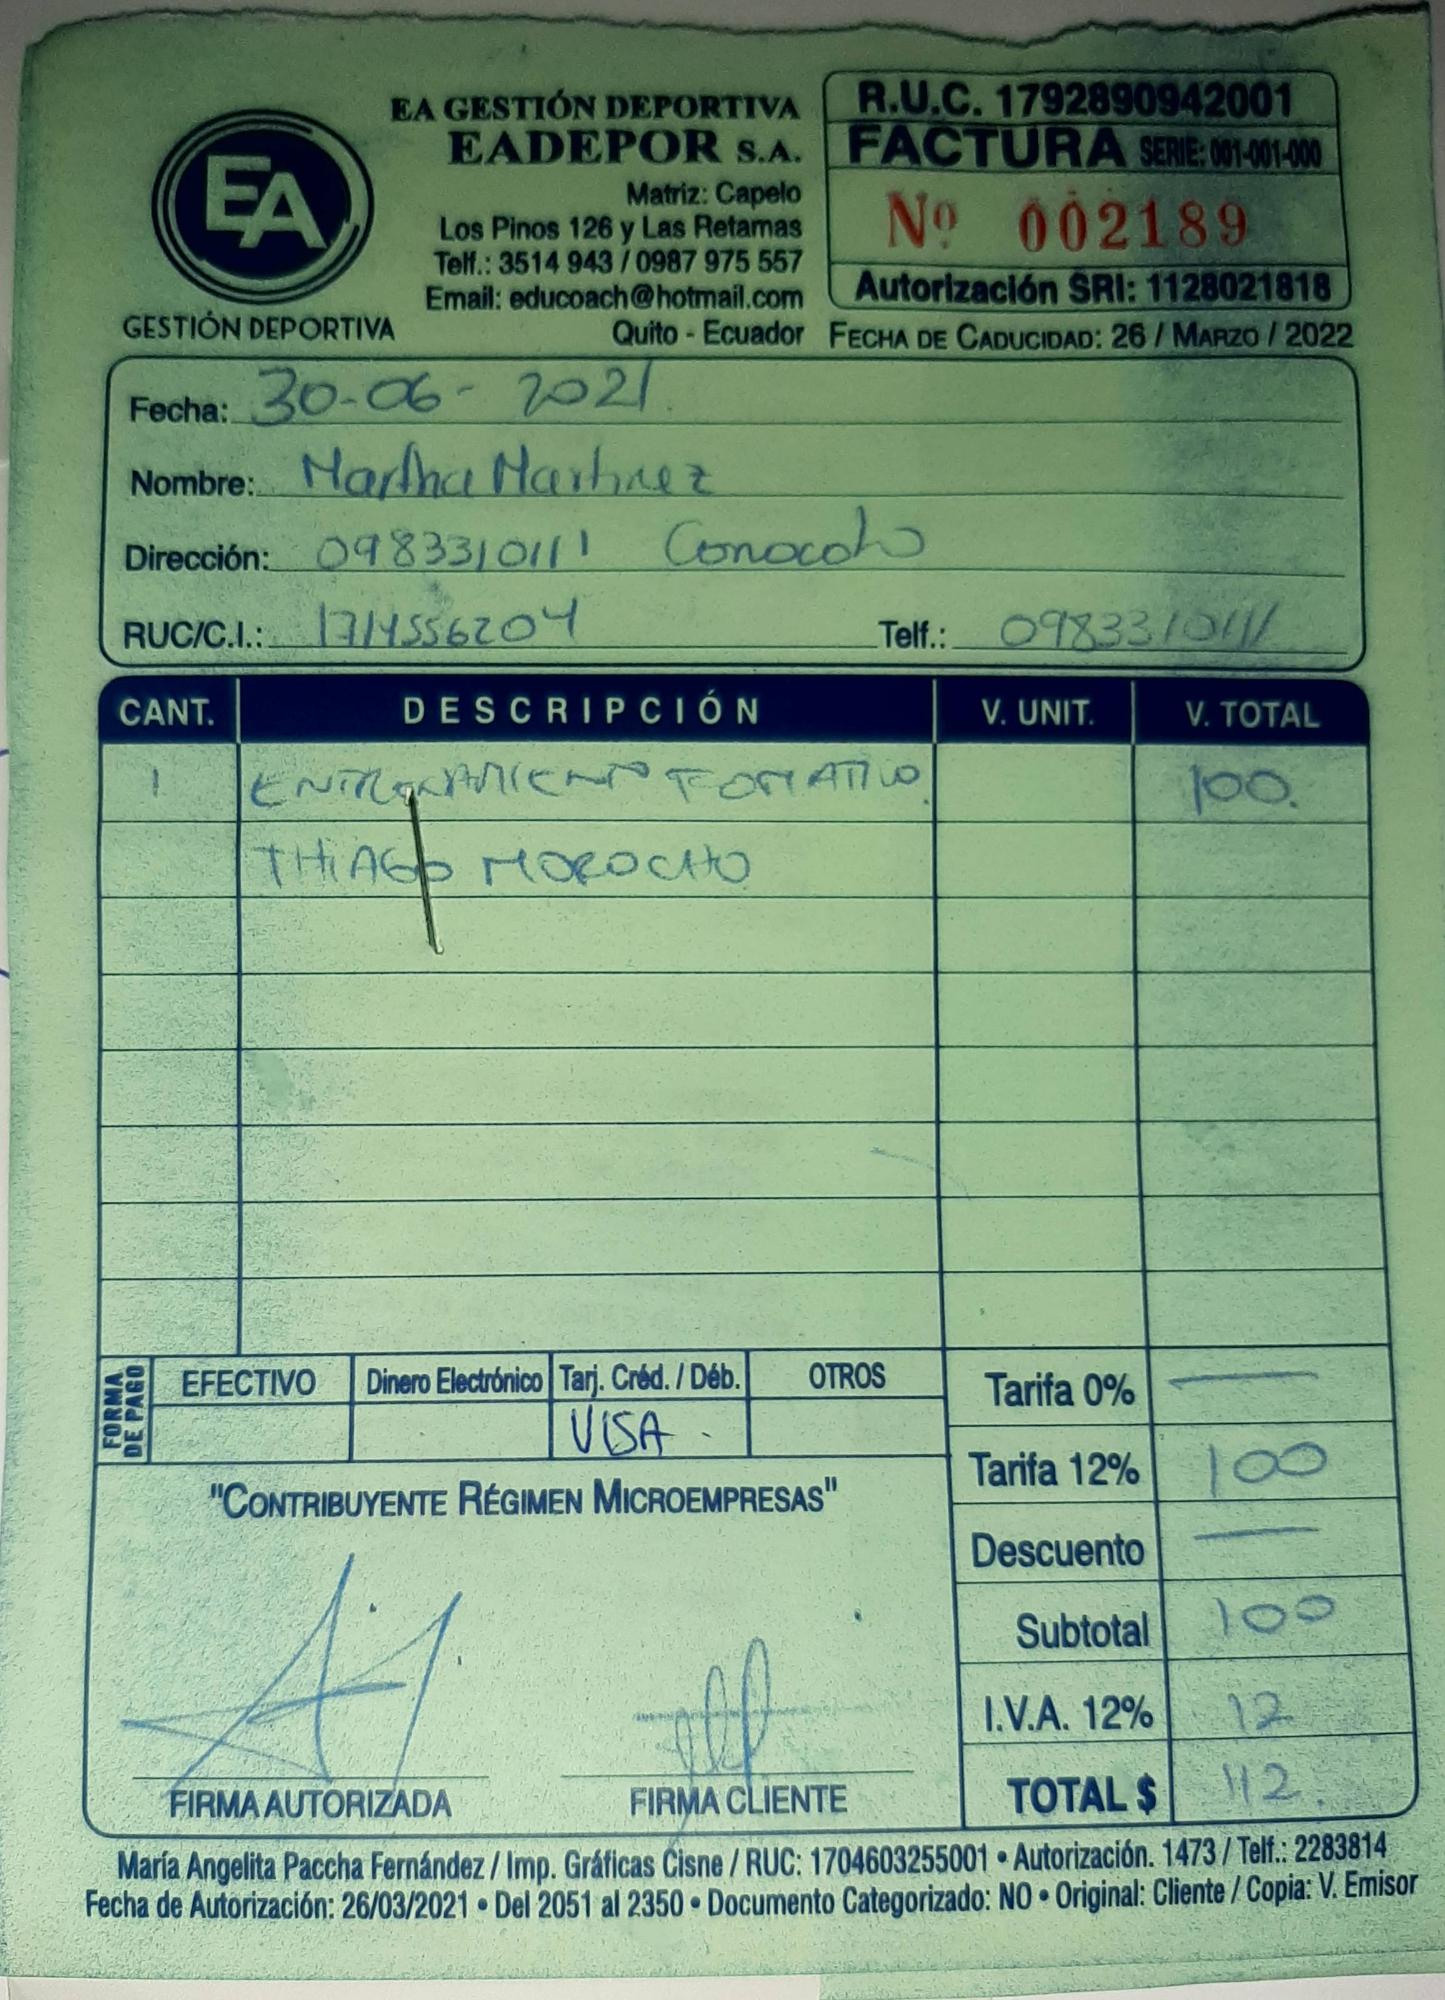 EA
GESTIÓN DEPORTIVA
EA GESTIÓN DEPORTIVA
EADEPOR S.A.
Matriz: Capelo
Los Pinos 126 y Las Retamas
Telf.: 3514 943 / 0987 975 557
Email: educoach@hotmail.com
Quito - Ecuador
R.U.C. 1792890942001
FACTURA SERIE: 001-001-000
Nº 002189
Autorización SRI: 1128021818
FECHA DE CADUCIDAD: 26 / MARZO / 2022
Fecha: 30-06-2021
Nombre: Martha Martinez
Dirección: 0983310111 Conocoto
RUC/C.I.: 1714556204 Telf.: 0983310111
CANT. DESCRIPCIÓN V. UNIT. V. TOTAL
1 ENTRENAMIENTO FORMATIVO. 100.
THIAGO MOROCHO
FORMA DE PAGO
EFECTIVO Dinero Electrónico Tarj. Créd. / Déb. OTROS
VISA.
Tarifa 0% —
Tarifa 12% 100
Descuento —
Subtotal 100
I.V.A. 12% 12
TOTAL $ 112.
"CONTRIBUYENTE RÉGIMEN MICROEMPRESAS"
FIRMA AUTORIZADA FIRMA CLIENTE
María Angelita Paccha Fernández / Imp. Gráficas Cisne / RUC: 1704603255001 • Autorización. 1473 / Telf.: 2283814
Fecha de Autorización: 26/03/2021 • Del 2051 al 2350 • Documento Categorizado: NO • Original: Cliente / Copia: V. Emisor